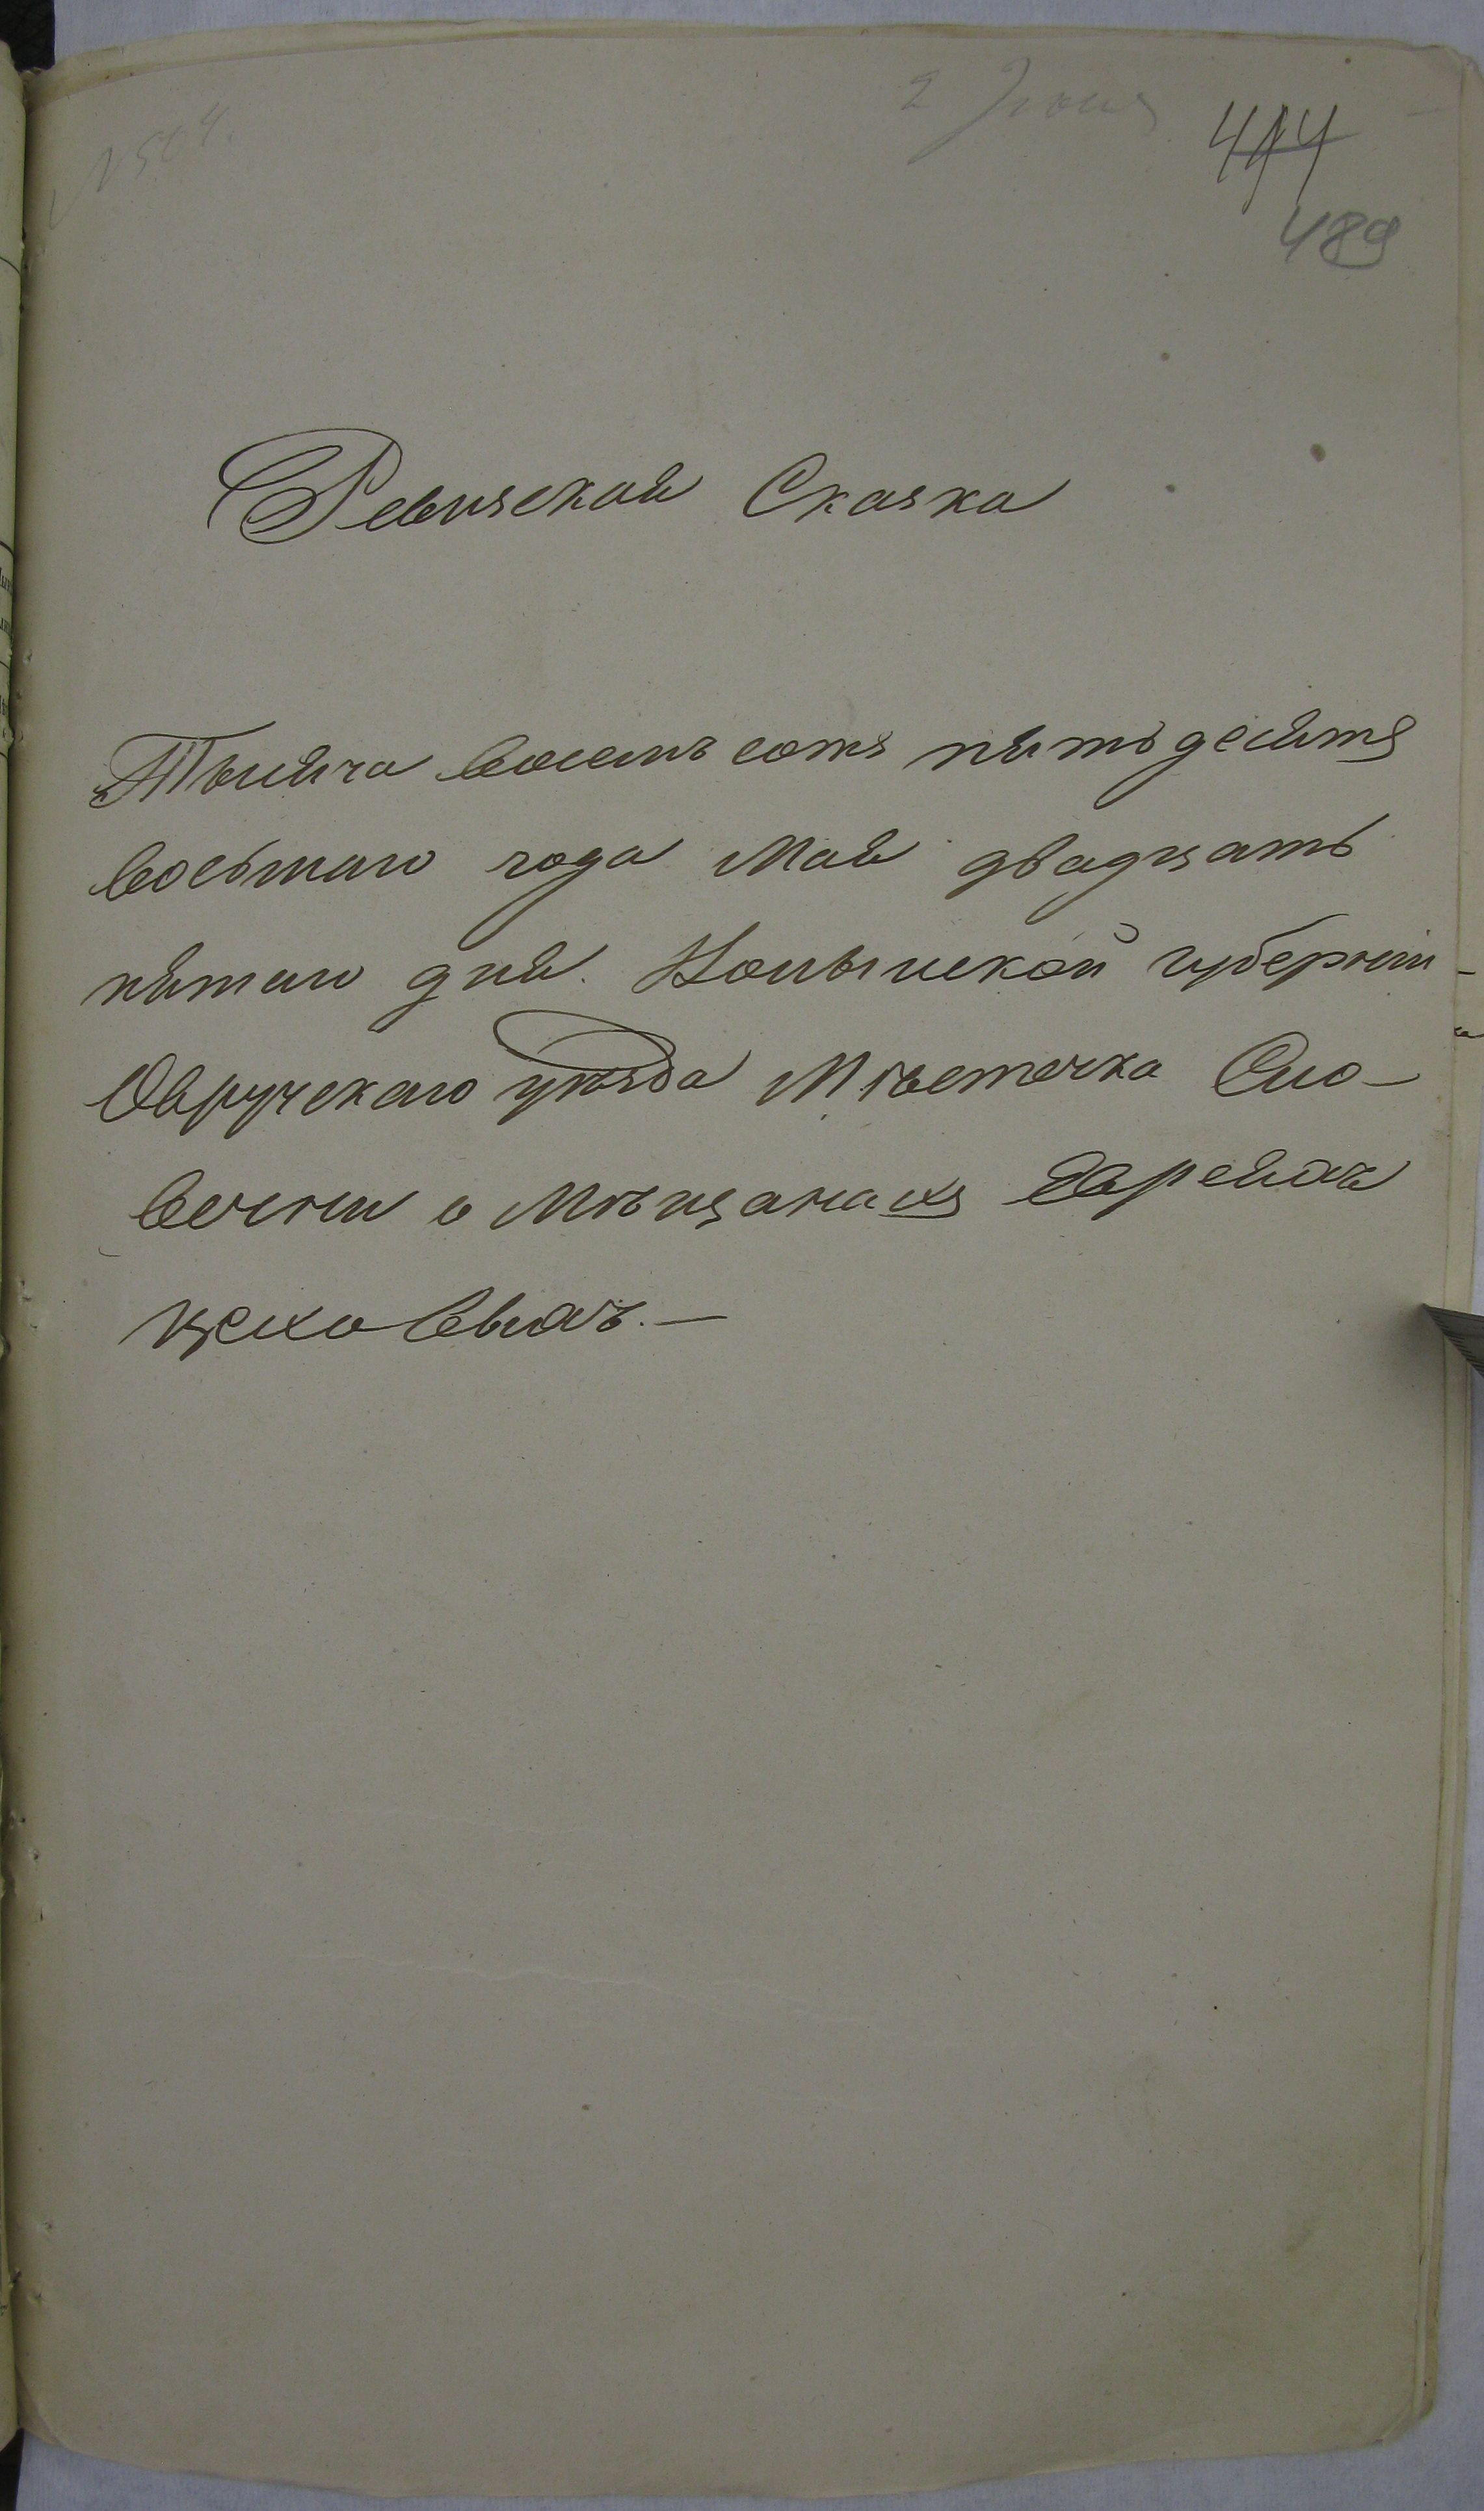 № 504.
2 Июня
414
489
Ревизская Сказка
Тысяча восемь сотъ пятьдесятъ
восьмаго года Мая двадцать
пятаго дня. Волынской губерніи
Овручскаго уѣзда Мѣстечка Сло-
вечни о Мѣщанахъ Евреяхъ
цеховыхъ.—